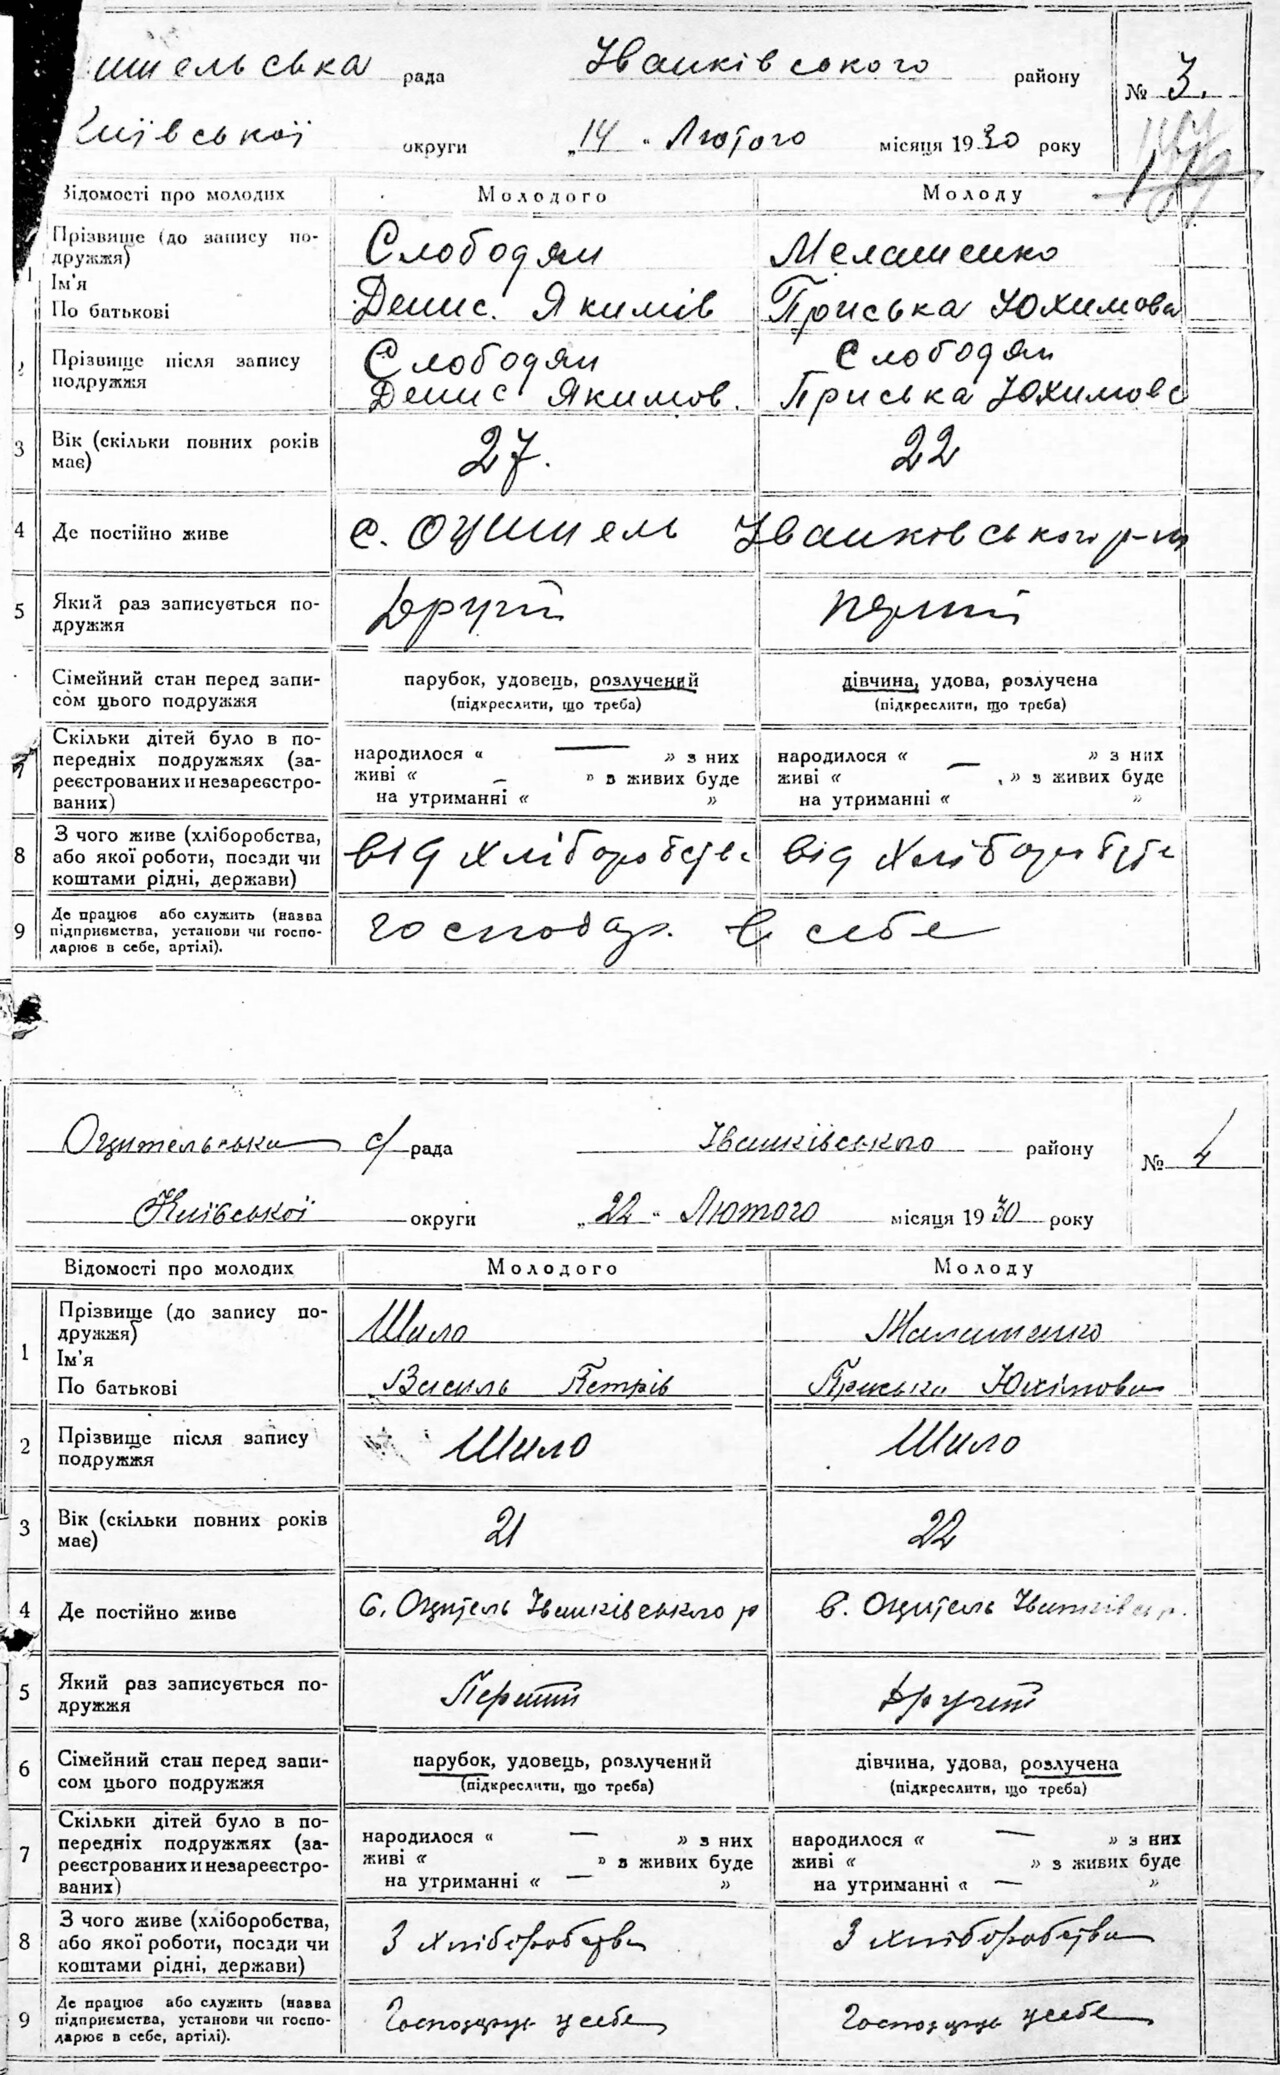 ишельська рада Іванківського району № 3.
Київської округи „14" Лютого місяця 1930 року
Відомості про молодих Молодого Молоду
1 Прізвище (до запису по-
дружжя) Слободян Меламенко
Ім'я
По батькові Денис. Якимів Приська Юхимова
2 Прізвище після запису Слободян Слободян
подружжя Денис Якимов. Приська Юхимова
3 Вік (скільки повних років
має) 27. 22
4 Де постійно живе с. Оцишель Іванковського р-ну
5 Який раз записується по-
дружжя Другий перший
Сімейний стан перед запи-
сом цього подружжя парубок, удовець, розлучений дівчина, удова, розлучена
(підкреслити, що треба) (підкреслити, що треба)
7 Скільки дітей було в по-
передніх подружжях (за-
реєстрованих и незареєстро-
ваних) народилося « — » з них народилося « — » з них
живі « — » з живих буде живі « » з живих буде
на утриманні « » на утриманні « »
8 З чого живе (хліборобства,
або якої роботи, посади чи
коштами рідні, держави) від хліборобства від хліборобства
9 Де працює або служить (назва
підприємства, установи чи госпо-
дарює в себе, артілі). господар. в себе
Оцительська с/рада Іванківського району № 4
Київської округи „22" Лютого місяця 1930 року
Відомості про молодих Молодого Молоду
1 Прізвище (до запису по-
дружжя) Шило Маламенко
Ім'я
По батькові Василь Петрів Приська Юхімова
2 Прізвище після запису
подружжя Шило Шило
3 Вік (скільки повних років
має) 21 22
4 Де постійно живе с. Оцитель Іванківського р с. Оцитель Іванківськ р.
5 Який раз записується по-
дружжя Перший Другий
6 Сімейний стан перед запи-
сом цього подружжя парубок, удовець, розлучений дівчина, удова, розлучена
(підкреслити, що треба) (підкреслити, що треба)
7 Скільки дітей було в по-
передніх подружжях (за-
реєстрованих и незареєстро-
ваних) народилося « — » з них народилося « — » з них
живі « » з живих буде живі « » з живих буде
на утриманні « — » на утриманні « — »
8 З чого живе (хліборобства,
або якої роботи, посади чи
коштами рідні, держави) З хліборобства З хліборобства
9 Де працює або служить (назва
підприємства, установи чи госпо-
дарює в себе, артілі). Господарює у себе Господарює у себе